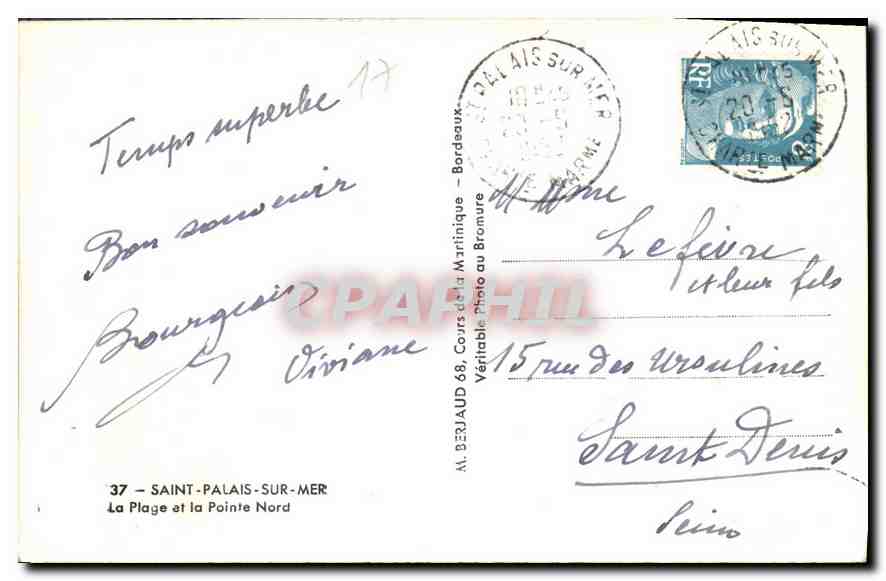 17
Temps superbe
Bon souvenir
Bourgeois
Viviane
37 - SAINT-PALAIS-SUR-MER
La Plage et la Pointe Nord
M. BERJAUD 68, Cours de la Martinique - Bordeaux
Véritable Photo au Bromure
ST PALAIS SUR MER
MARME
RF
POSTES
PALAIS SUR MER
20 - 6
M Mme
Lefèvre
et leur fils
15 rue des Ursulines
Saint Denis
Seine
CPAPHIL